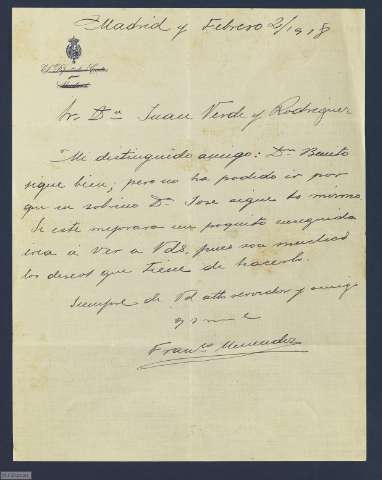 Madrid y Febrero 2/1918
Sr. Dn Juan Verde y Rodriguez
Me distinguido amigo: Dn Benito
sigue bien; pero no ha podido ir por
que su sobrino Dn José sigue lo mismo
Si este mejorara un poquito enseguida
iria á ver a Vds, pues son muchos
los deseos que tiene de hacerlo.
Siempre de Vd atto servidor y amigo
q s m e
Franco Menendez